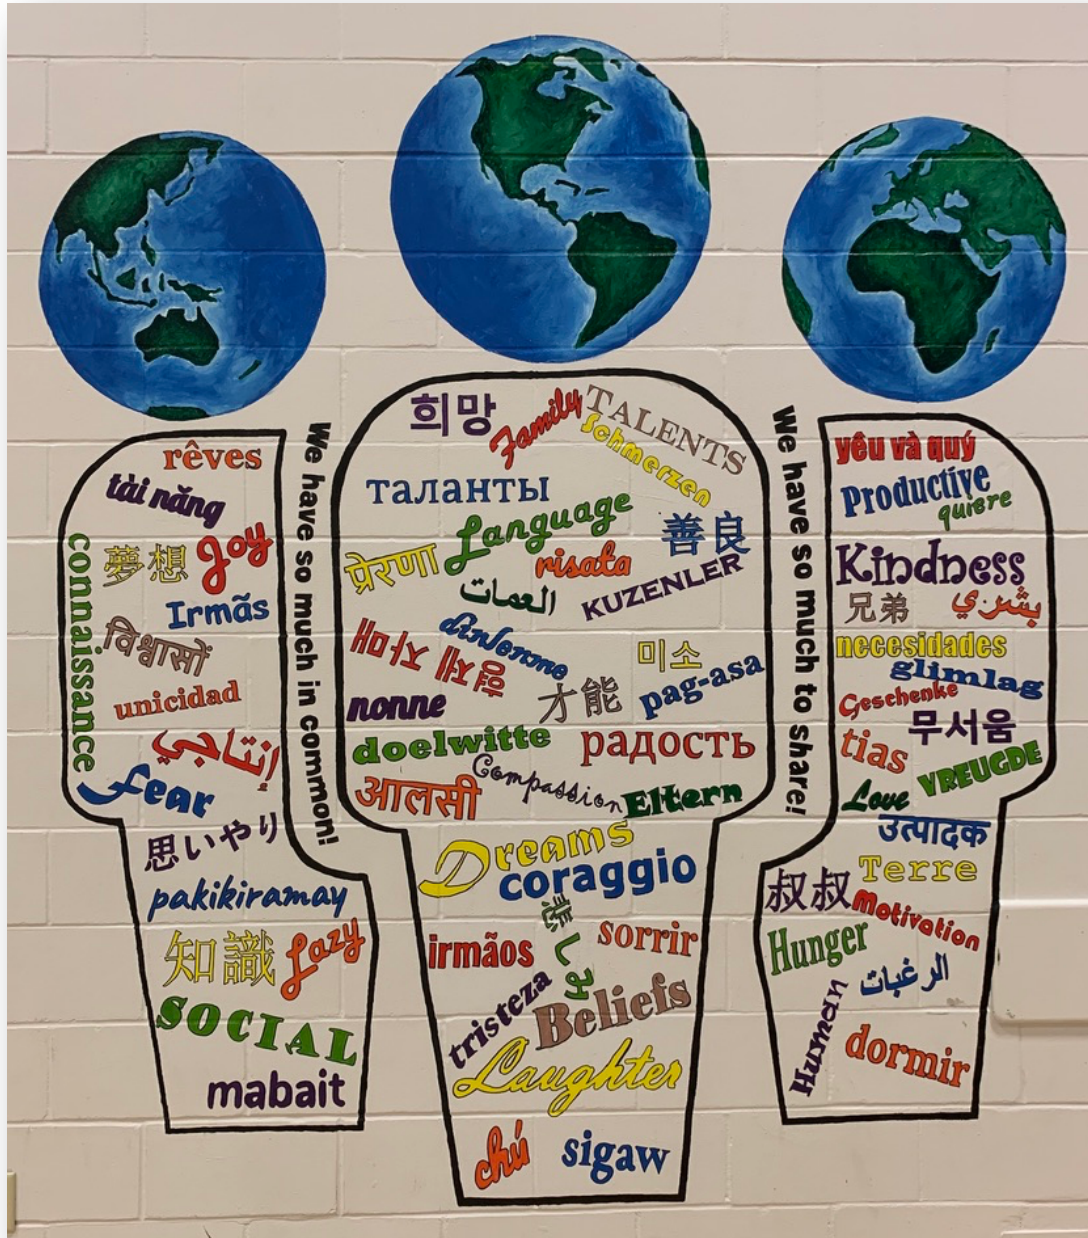 rêves
tài năng
夢想
Joy
connaissance
Irmãs
विश्वासों
unicidad
إنتاجي
fear
思いやり
pakikiramay
知識
Lazy
SOCIAL
mabait
We have so much in common!
희망
Family
TALENTS
Schmerzen
таланты
Language
善良
प्रेरणा
risata
العمات
KUZENLER
dinlenme
미소
pag-asa
nonne
才能
doelwitte
радость
Compassion
आलसी
Eltern
Dreams
coraggio
irmãos
sorrir
tristeza
Beliefs
Laughter
chú
sigaw
We have so much to share!
yêu và quý
Productive
quiere
Kindness
兄弟
بشري
necesidades
glimlag
Geschenke
무서움
tias
VREUGDE
Love
उत्पादक
Terre
叔叔
Motivation
Hunger
الرغبات
Human
dormir